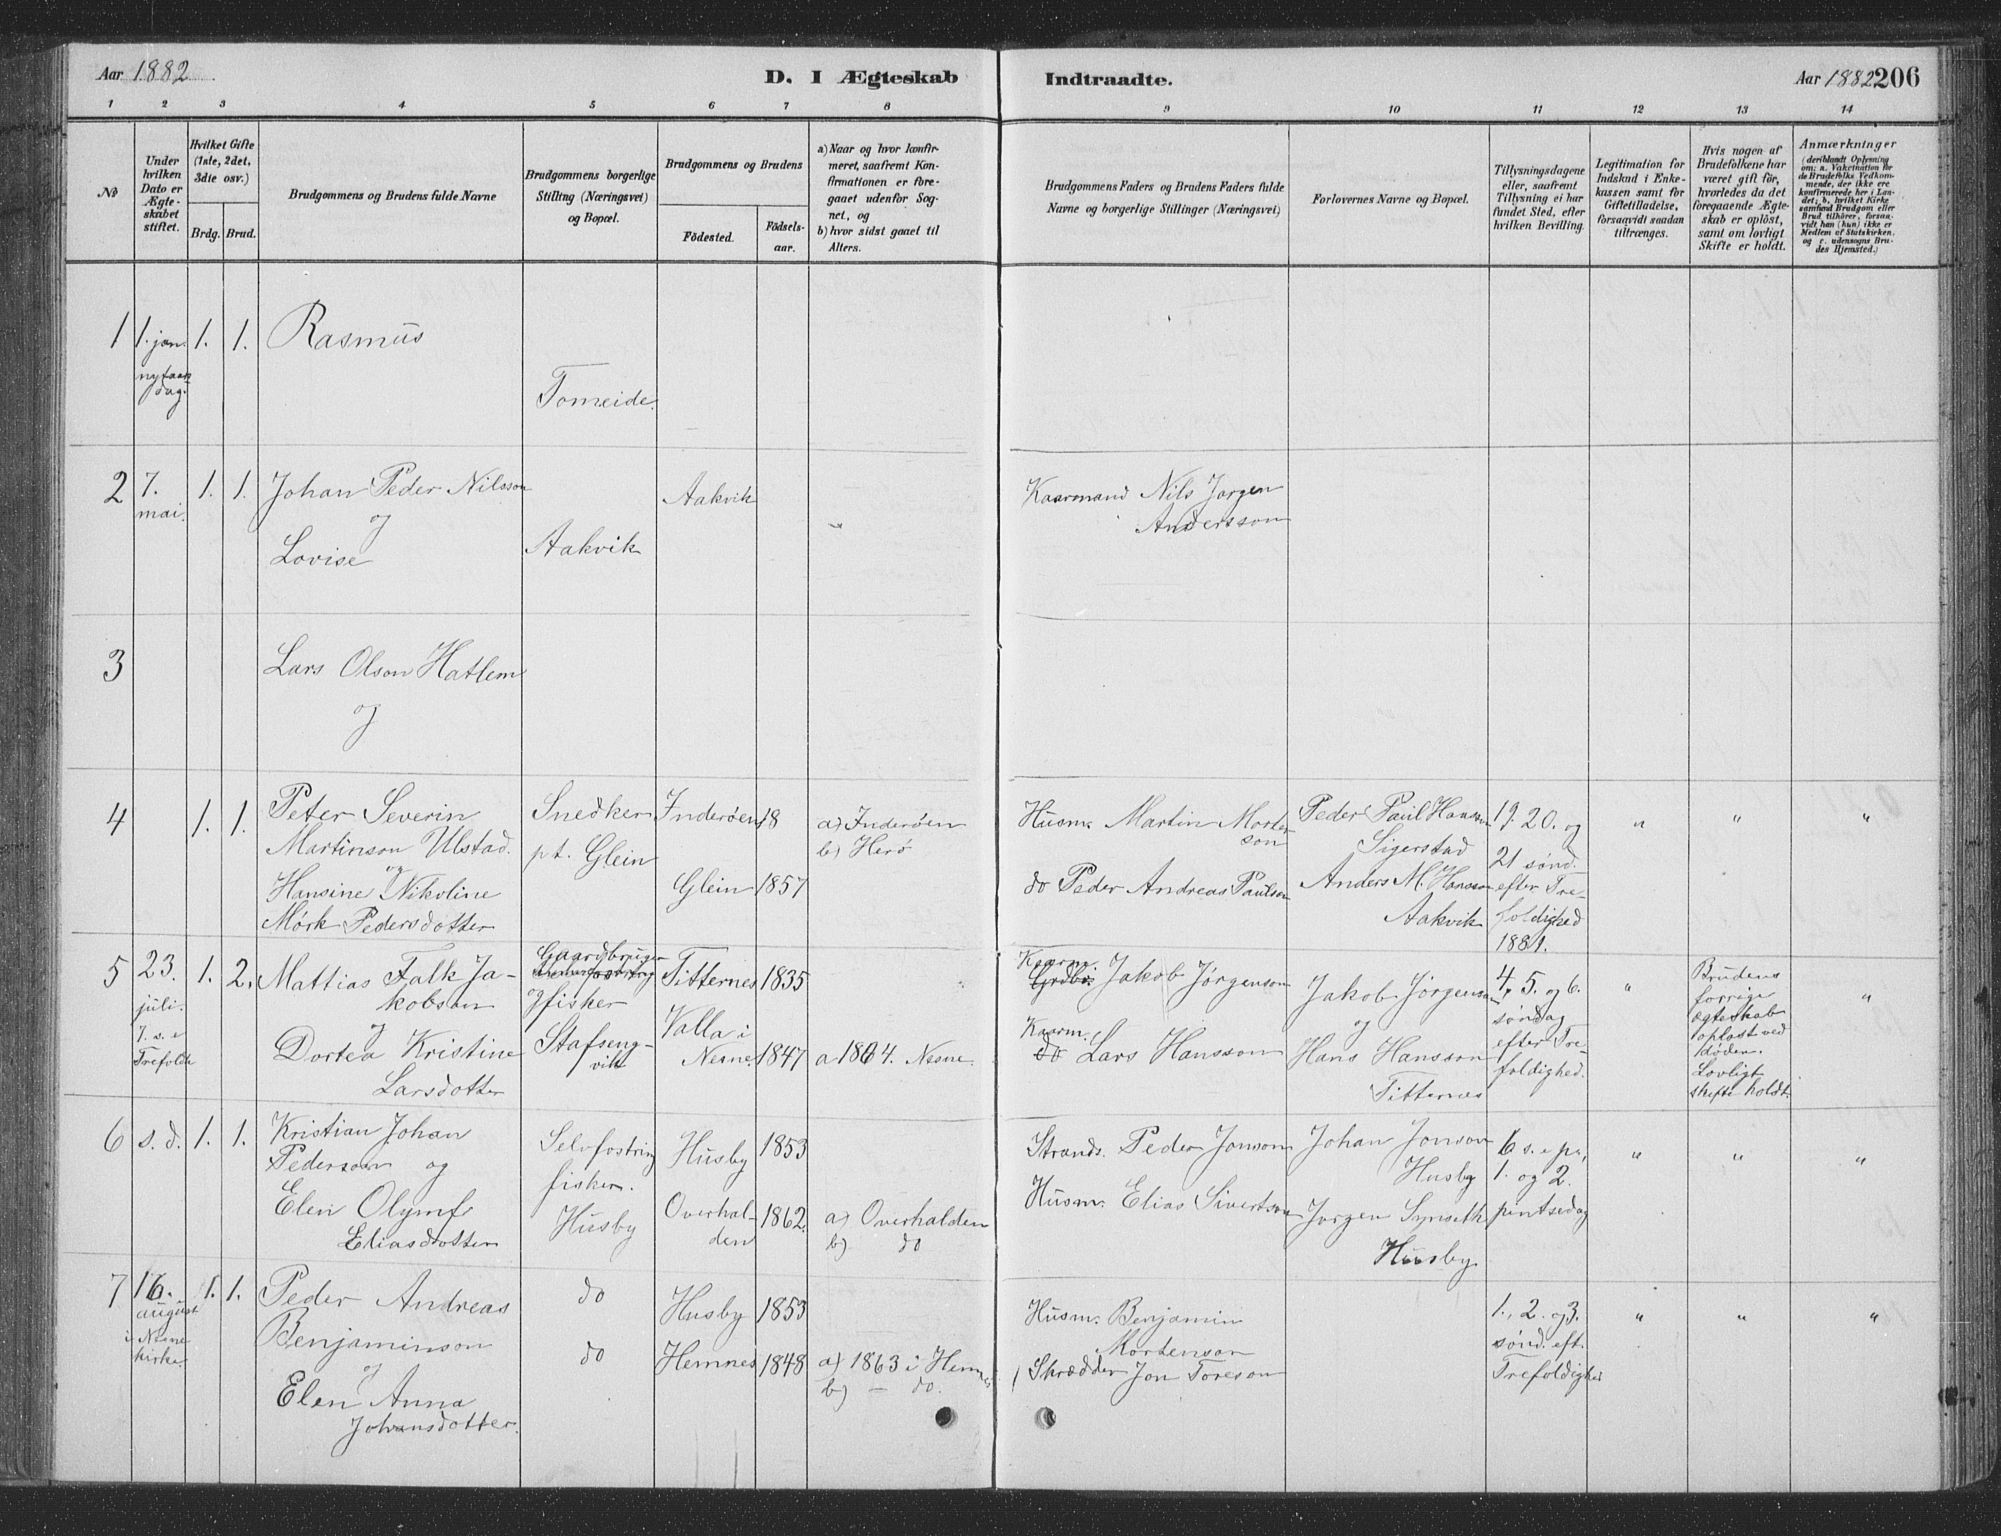 Aar 1882
D. I Ægteskab Indtraadte.
Aar 1882 206
1 2 3 4 5 6 7 8 9 10 11 12 13 14
No
Under hvilken Dato er Ægteskabet stiftet.
Hvilket Gifte (1ste, 2det, 3die osv.)
Brdg. Brud.
Brudgommens og Brudens fulde Navne
Brudgommens borgerlige Stilling (Næringsvei) og Bopæl.
Brudgommens og Brudens
Födested.
Födselsaar.
a) Naar og hvor konfirmeret, saafremt Konfirmationen er foregaaet udenför Sognet, og
b) hvor sidst gaaet til Alters.
Brudgommens Faders og Brudens Faders fulde Navne og borgerlige Stillinger (Næringsvei)
Forlovernes Navne og Bopæl.
Tillysningsdagene eller, saafremt Tillysning ei har fundet Sted, efter hvilken Bevilling.
Legitimation for Indskud i Enkekassen samt for Giftetilladelse, forsaavidt saadan tiltrænges.
Hvis nogen af Brudefolkene har været gift för, hvorledes da det foregaaende Ægteskab er oplöst, samt om lovligt Skifte er holdt.
Anmærkninger
(deriblandt Oplysning om: a. Vakcination for de Brudefolks Vedkommende, der ikke ere konfirmerede her i Landet; b. hvilket Kirkesamfund Brudgom eller Brud tilhörer, forsaavidt han (hun) ikke er Medlem af Statskirken, og c. udensogns Brudes Hjemsted.)
1 1. jan. 1. 1. Rasmus
nytaarsdag.
Tomeide.
2 7. mai. 1. 1. Johan Peder Nilsson Aakvik Kaarmand Nils Jørgen
og Andersson
Lovise Aakvik
3 Lars Olson Hatlem
og
4 1. 1. Peter Severin Snedker Inderøen 18 a) Inderøen Husm. Martin Mortenson Peder Paul Hansson 19. 20. og " " "
Martinson Ulstad. pt. Glein b) Herø Sigerstad 21 sønd.
og
Hansine Nikoline Glein 1857 do Peder Andreas Paulson Anders M. Hansson efter Tre-
Mørk Pedersdotter Aakvik foldighed
1881.
5 23. 1. 2. Mattias Falk Ja- Gaardbruger Titternes 1835 Kaarm. Jakob Jørgenson Jakob Jørgenson 4, 5. og 6. " Brudens "
juli. kobson og fisker søndag forrige
7. s. e og Stafseng- Valla i og efter Tre- ægteskab
Trefoldh Dortea Kristine vik Nesne. 1847 a 1864. Nesne. Kaarm. do Lars Hansson Hans Hansson foldighed. opløst ved
Larsdotter Titternes døden.
Lovligt
skifte holdt.
6 s. d. 1. 1. Kristian Johan Selvfostring Husby 1853 Strands. Peder Jonson Johan Jonson 6 s. e pa, " " "
Pederson og fisker. Husby 1. og 2.
Elen Olymf Husby Overhal- 1862. a) Overhalden Husm. Elias Sivertson Jørgen Synseth pintsedag
Eliasdotter den b) do Husby
7 16. 1. 1. Peder Andreas do Husby 1853 Husm. Benjamin 1., 2. og 3. " " "
august Benjaminson Mortenson sønd. eft.
i Nesne og do Hemnes 1848 a) 1863 i Hemnes Skrædder Jon Toreson Trefoldighed
kirke Elen Anna b) – do.
Johansdotter.